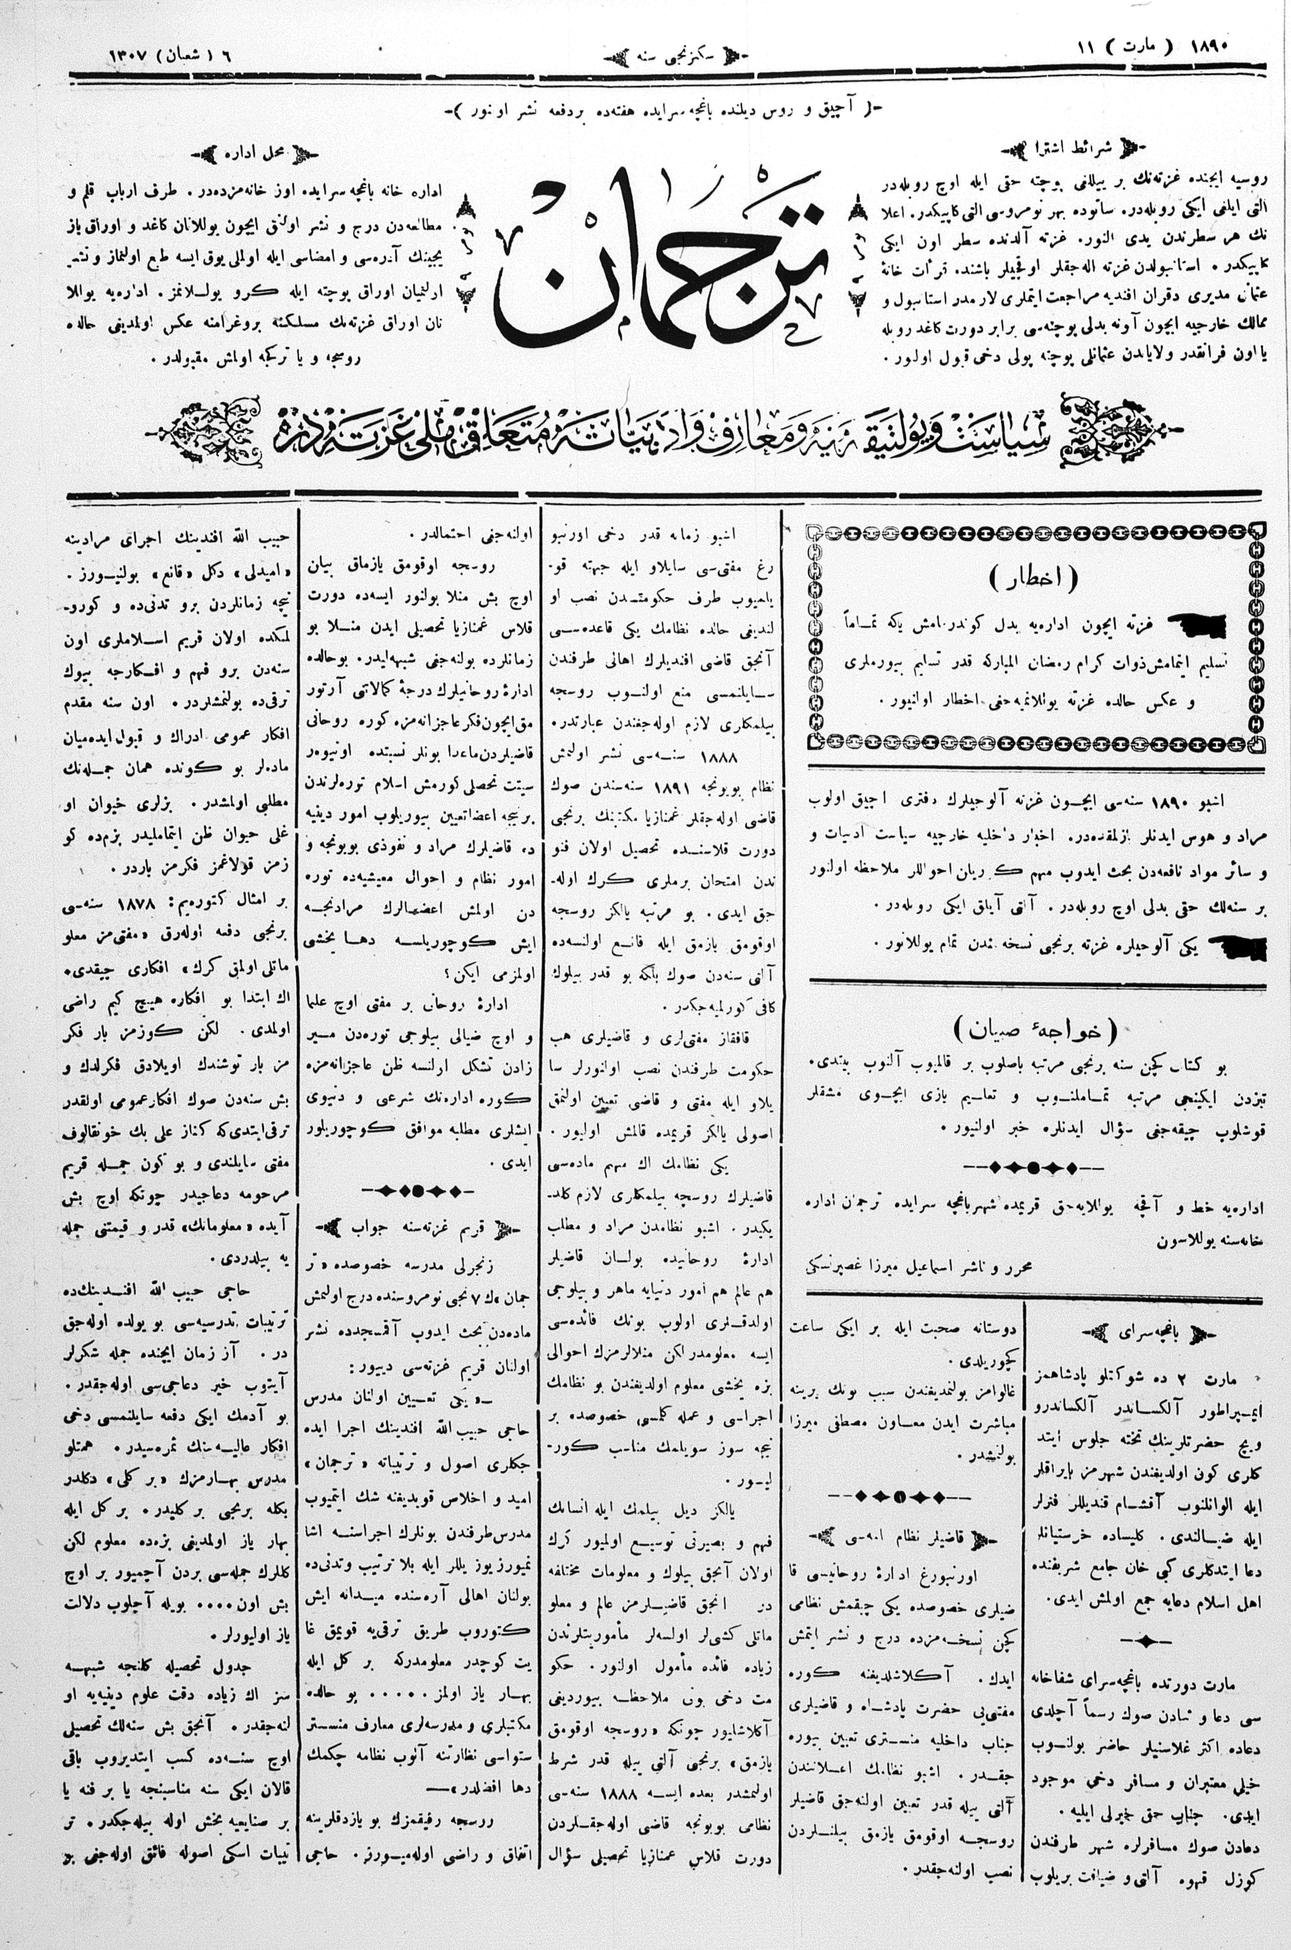 ١٨٩٠ ( مارت ) ١١
سكزنجی سنه
٦ ( شعبان ) ١٣٠٧
-( آچیق و روس دیلنده باغچه‌سرایده هفته‌ده بردفعه نشر اونور )-
شرائط اشترا
روسیه ایچنده غزته‌نك بر ییللغی پوچته حقی ایله اوچ روبله‌در
التی ایلغی ایكی روبله‌در. ساتوده بهر نومروسی التی كاپیكدر. اعلا
نك هر سطرندن یدی النور. غزته آلدنده سطر اون ایكی
كاپیكدر. استانبولدن غزته اله‌جقلر اوقچیلر باشنده
عثمان مدیری دقران افندیه مراجعت ایتملری لازمدر استانبول و
ممالك خارجیه ایچون آونه بدلی پوچته‌سی برابر دورت كاغد روبله
یا اون فرانقدر ولایاتدن عثمانلی پوچته پولی دخی قبول اولور.
ترجمان
محل اداره
اداره خانه باغچه سرایده اوز خانه‌مزده‌در. طرف ارباب قلم و
مطالعه‌دن درج و نشر اولنق ایچون یوللانان كاغد و اوراق یاز
یجینك آدره‌سی و امضاسی ایله اولملی یوق ایسه طبع اولنماز و نشر
ایدلمیان اوراق پوچته ایله كرو یوللانمز. اداره‌یه یوللا
نان اوراق غزته‌نك مسلكنه پروغرامنه عكس اولمدیغی حالده
روسجه و یا تركجه اولمش مقبولدر.
سیاست و پولتیقه‌نیه و معارف و ادبیاته متعلق ملی غزته‌در
( اخطار )
غزته ایچون اداره‌یه بدل كوندرمامش یاكه تماماً
تسلیم ایتمامش ذوات كرام رمضان المبارکه قدر تسلیم بیورملری
و عكس حالده غزته یوللانمیه‌جغی اخطار اولنیور.
اشبو ١٨٩٠ سنه‌سی ایچون غزته آلوجیلرك دفتری آچیق اولوب
مراد و هوس ایدنلر یازلمقده‌در. اخبار داخلیه خارجیه سیاست ادبیات و
و سائر مواد نافعه‌دن بحث ایدوب مهم كذریان احواللر ملاحظه اولنور
بر سنه‌لك حقی بدلی اوچ روبله‌در. آلتی آیلق ایكی روبله‌در.
یكی آلوجیلره غزته برنجی نسخه‌شدن تمام یوللانور.
( خواجهٔ صبیان )
بو كتاب كچن سنه برنجی مرتبه باصلوب بر قالمیوب آلنوب بیتدی.
تیزدن ایكینجی مرتبه تماملنوب و تعلیم یازی ایچون مشقلر
قوشلوب چیقه‌جغی سؤال ایدنلره خبر اولنیور.
اداره‌یه خط و آقچه یوللایه‌جق قریمده شهر باغچه سرایده ترجمان اداره
خانه‌سنه یوللاسون
محرر و ناشر اسماعیل میرزا غصپرنسكی
باغچه‌سرای
مارت ٢ ده شوكتلو پادشاهمز
ایمپراطور آلكساندر آلكساندرو
ویچ حضرتلرینك تخته جلوس ایتد
كلری كون اولدیغندن شهرمز بایراقلر
ایله الوانلنوب آقشام قندیللر فنرلر
ایله ضیالندی. كلیساده خرستیانلر
دعا ایتدكلری كبی خان جامع شریفنده
اهل اسلام دعایه جمع اولمش ایدی.
مارت دورتده باغچه سرای شفاخانه
سی دعا و شادن صوك رسماً آچلدی
دعاده اكثر غلاسنیلر حاضر بولنوب
خیلی معتبران و مسافر دخی موجود
ایدی. جناب حق خیرلی ایلیه.
دعادن صوك مسافرلره شهر طرفندن
كوزل قهوه آلتی و ضیافت بریلوب
دوستانه صحبت ایله بر ایكی ساعت
كچوریلدی.
غالوامز بولندیغندن سبب بونك برینه
مباشرت ایدن معاون مصطفی میرزا
بولنمشدر.
قاضیلر نظام نامه‌سی
اورنبورغ ادارهٔ روحانیه‌سی قا
ضیلری خصوصده یكی چیقمش نظامی
كچن نسخه‌مزده درج و نشر ایتمش
ایدك. آكلاشلدیغنه كوره
مفتی‌یی حضرت پادشاه و قاضیلری
جناب داخلیه منستری تعیین بیوره
جقدر. اشبو نظامك اعلانندن
آلتی ییله قدر تعیین اولنه‌جق قاضیلر
روسجه اوقومق یازمق بیلنلردن
نصب اولنه‌جقدر.
اشبو زمانه قدر دخی اورنبو
رغ مفتی‌سی سایلاو ایله جبهته قو-
یلمیوب طرف حكومتدن نصب او
لندیغی حالده نظامك یكی قاعده‌سی
آنجق قاضی افندیلرك اهالی طرفندن
سایلنمسی منع اولنوب روسجه
بیلمكلری لازم اوله‌جغندن عبارتدر.
١٨٨٨ سنه‌سی نشر اولنمش
نظام بوینجه ١٨٩١ سنه‌سندن صوك
قاضی اوله‌جقلر غمنازیا مكتبنك برنجی
دورت قلاسنده تحصیل اولان فنو
ندن امتحان برملری كرك اوله-
جق ایدی. بو مرتبه یالكز روسجه
اوقومق یازمق ایله قانع اولنسه‌ده
آلتی سنه‌دن صوك بلكه بو قدر بیلوك
كافی كورلمیه‌جكدر.
قافقاز مفتی‌لری و قاضیلری هب
حكومت طرفندن نصب اولنورلر سا
یلاو ایله مفتی و قاضی تعیین اولنمق
اصولی یالكز قریمده قالمش اولیور.
یكی نظامك اك مهم ماده‌سی
قاضیلرك روسچه بیلمكلری لازم كلد-
یكیدر. اشبو نظامدن مراد و مطلب
ادارهٔ روحانیده بولنان قاضیلر
هم عالم هم امور دنیایه ماهر و بیلوجی
اولدقلری اولوب بونك فائده‌سی
ایسه معلومدر لكن منلالرمزك احوالی
بزه یخشی معلوم اولدیغندن بو نظامك
اجراسی و عمله كلمسی خصوصده بر
نیجه سوز سویلمك مناسب كور-
لیور.
یالكز دیل بیلمك ایله انسانك
فهم و بصیرتی توسیع اولمیور كرك
اولان آنجق بیلوك و معلومات مختلفه
در. انجق قاضیلرمز عالم و معلو
ماتلی كشی‌لر اولسه‌لر مأموریتلرندن
زیاده فائده مأمول اولنور. حكو
مت دخی بونی ملاحظه بیوردیغی
آكلاشلیور چونكه «روسجه اوقومق
یازمق» برنجی آلتی ییله قدر شرط
اولنمشدر بعده ایسه ١٨٨٨ سنه‌سی
نظامی بوینجه قاضی اوله‌جقلردن
دورت قلاس غمنازیا تحصیلی سؤال
اولنه‌جغی احتمالدر.
روسجه اوقومق یازماق بیان
اوچ بش منلا بولنور ایسه‌ده دورت
قلاس غمنازیا تحصیلی ایدن منلا بو
زمانلرده بولنه‌جغی شبهه‌لیدر. بو حالده
ادارهٔ روحانیلرك درجهٔ كمالاتی آرتور
مق ایچون فكر عاجزانه‌مزه كوره روحانی
قاضیلردن ماعدا بونلر نسبتده اونیوه‌ر
سیتت تحصلی كورمش اسلام توره‌لرندن
بر نیجه اعضا تعیین بیوریلوب امور دینیه
ده قاضیلرك مراد و نفوذی بوینجه و
امور نظام و احوال معیشیه‌ده توره
دن اولمش اعضالرك مرادنجه
ایش كوچوریلسه دها یخشی
اولمزمی ایكن؟
ادارهٔ روحانی بر مفتی اوچ علما
و اوچ ضیالی بیلوجی توره‌دن میر
زادن تشكل اولنسه ظن عاجزانه‌مزه
كوره اداره‌نك شرعی و دنیوی
ایشلری مطلبه موافق كوچوریلور
ایدی.
قریم غزته‌سنه جواب
زنجرلی مدرسه خصوصده «تر
جمان»ك ٧ نجی نومروسنده درج اولنمش
ماده‌دن بحث ایدوب آقمجدده نشر
اولنان قریم غزته‌سی دییور:
—«یكی تعیین اولنان مدرس
حاجی حبیب الله افندینك اجرا ایده
جكلری اصول و ترتیباته «ترجمان»
امید و اخلاص قویدیغنه شك ایتمیوب
مدرس طرفندن بونلرك اجراسنه اشا
نمیورز یوز یللر ایله بلا ترتیب وتدنی‌ده
بولنان اهالی آره‌سنده میدانه ایش
كتوروب طریق ترقی‌یه قویمق غا
یت كوچدر معلومدركه بر كل ایله
بهار یاز اولمز..... بو حالده
مكتبلری و مدرسه‌لری معارف منستر
ستواسی نظارتنه آلوب نظامه چكمك
دها افضلدر»—
روسجه رفیقمزك بو یازدقلرینه
اتفاق و راضی اوله‌میورز. حاجی
حبیب الله افندینك اجرای مرادینه
«امیدلی» دكل «قانع» بولنیورز.
نیچه زمانلردن برو تدنی‌ده و كورو-
لمكده اولان قریم اسلاملری اون
سنه‌دن برو فهم و افكارجه بیوك
ترقی‌ده بولنمشلردر. اون سنه مقدم
افكار عمومی ادراك و قبول ایده‌میان
ماده‌لر بو كونده همان جمله‌نك
مطلبی اولمشدر. بزلری خیوان او
غلی حیوان ظن ایتماملیدر بزم‌ده كو
زمز قولاغمز فكرمز باردر.
بر امثال كتوره‌یم: ١٨٧٨ سنه‌سی
برنجی دفعه اوله‌رق «مفتی‌مز معلو
ماتلی اولمق كرك» افكاری چیقدی.
اك ابتدا بو افكاره هیچ كیم راضی
اولمدی. لكن كوزمز بار فكر
مز بار توشندك اویلادق فكرلدك و
بش سنه‌دن صوك افكار عمومی اولقدر
ترقی ایتدی كه كناز علی بك خونقالوف
مفتی سایلندی و بو كون جمله قریم
مرحومه دعاجیدر چونكه اوچ بش
آیده «معلوماتك» قدر و قیمتنی جمله
یه بیلدردی.
حاجی حبیب الله افندینك‌ده
ترتیبات تدرسیه‌سی بو یولده اوله‌جق
در. آز زمان ایچنده جمله شكرلر
آیتوب خیر دعاجی‌سی اوله‌جقدر.
بو آدمك ایكی دفعه سایلنمسی دخی
افكار عالیه‌سینك ثمره‌سیدر. همتلو
مدرس بهارمزك «بر كلی» دكلدر
بلكه برنجی بر كلیدر. بر كل ایله
بهار یاز اولمدیغی بزه‌ده معلوم لكن
كللرك جمله‌سی بردن آچمیور بر اوچ
بش اون.... بویله آچلوب دلالت
یاز اولیورلر.
جدول تحصیله كلنجه شبهه
سز اك زیاده دقت علوم دینیه‌یه او
لنه‌جقدر. آنجق بش سنه‌لك تحصیلی
اوچ سنه‌ده كسب ایتدیروب باقی
قالان ایكی سنه مناسبنجه یا بر فنه یا
بر صنایعیه بخش اوله بیله‌جكدر. تر
تیبات اسكی اصوله فائق اوله‌جغی بر